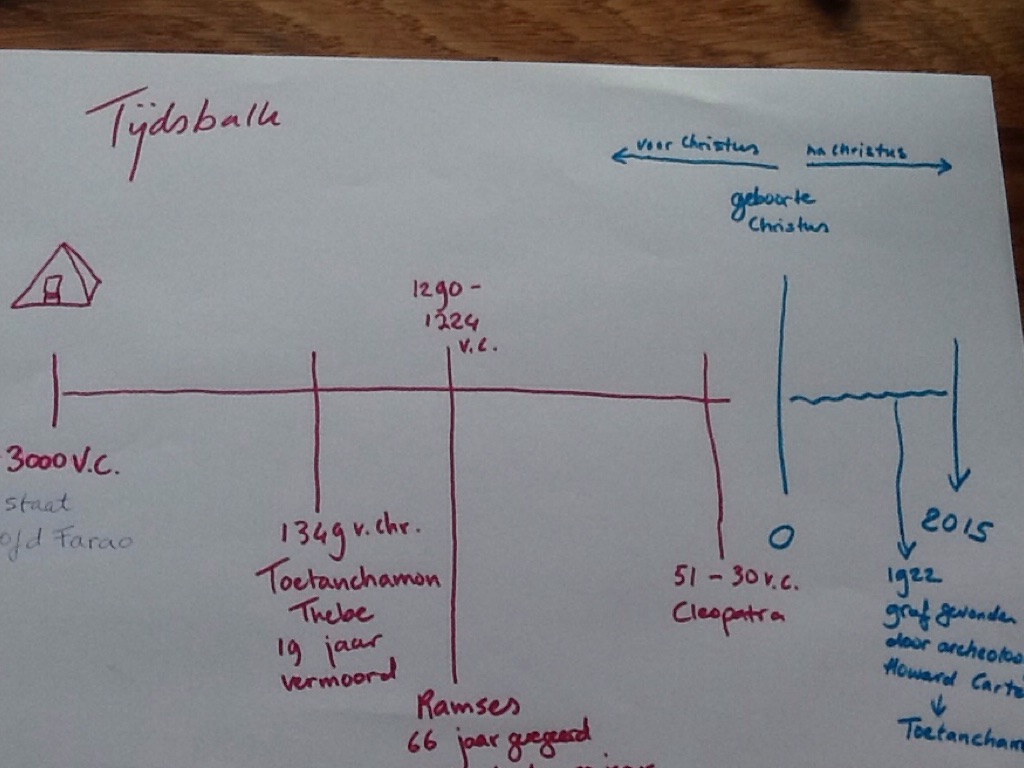 Tijdsbalk
voor Christus
na christus
geboorte
Christus
1290 -
1224
v.c.
3000 v.c.
staat
ofd Farao
1349 v.chr.
Toetanchamon
Thebe
19 jaar
vermoord
Ramses
66 jaar geregeerd
51 - 30 v.c.
Cleopatra
0
2015
1922
graf gevonden
door archeoloo
Howard Carte
Toetancham